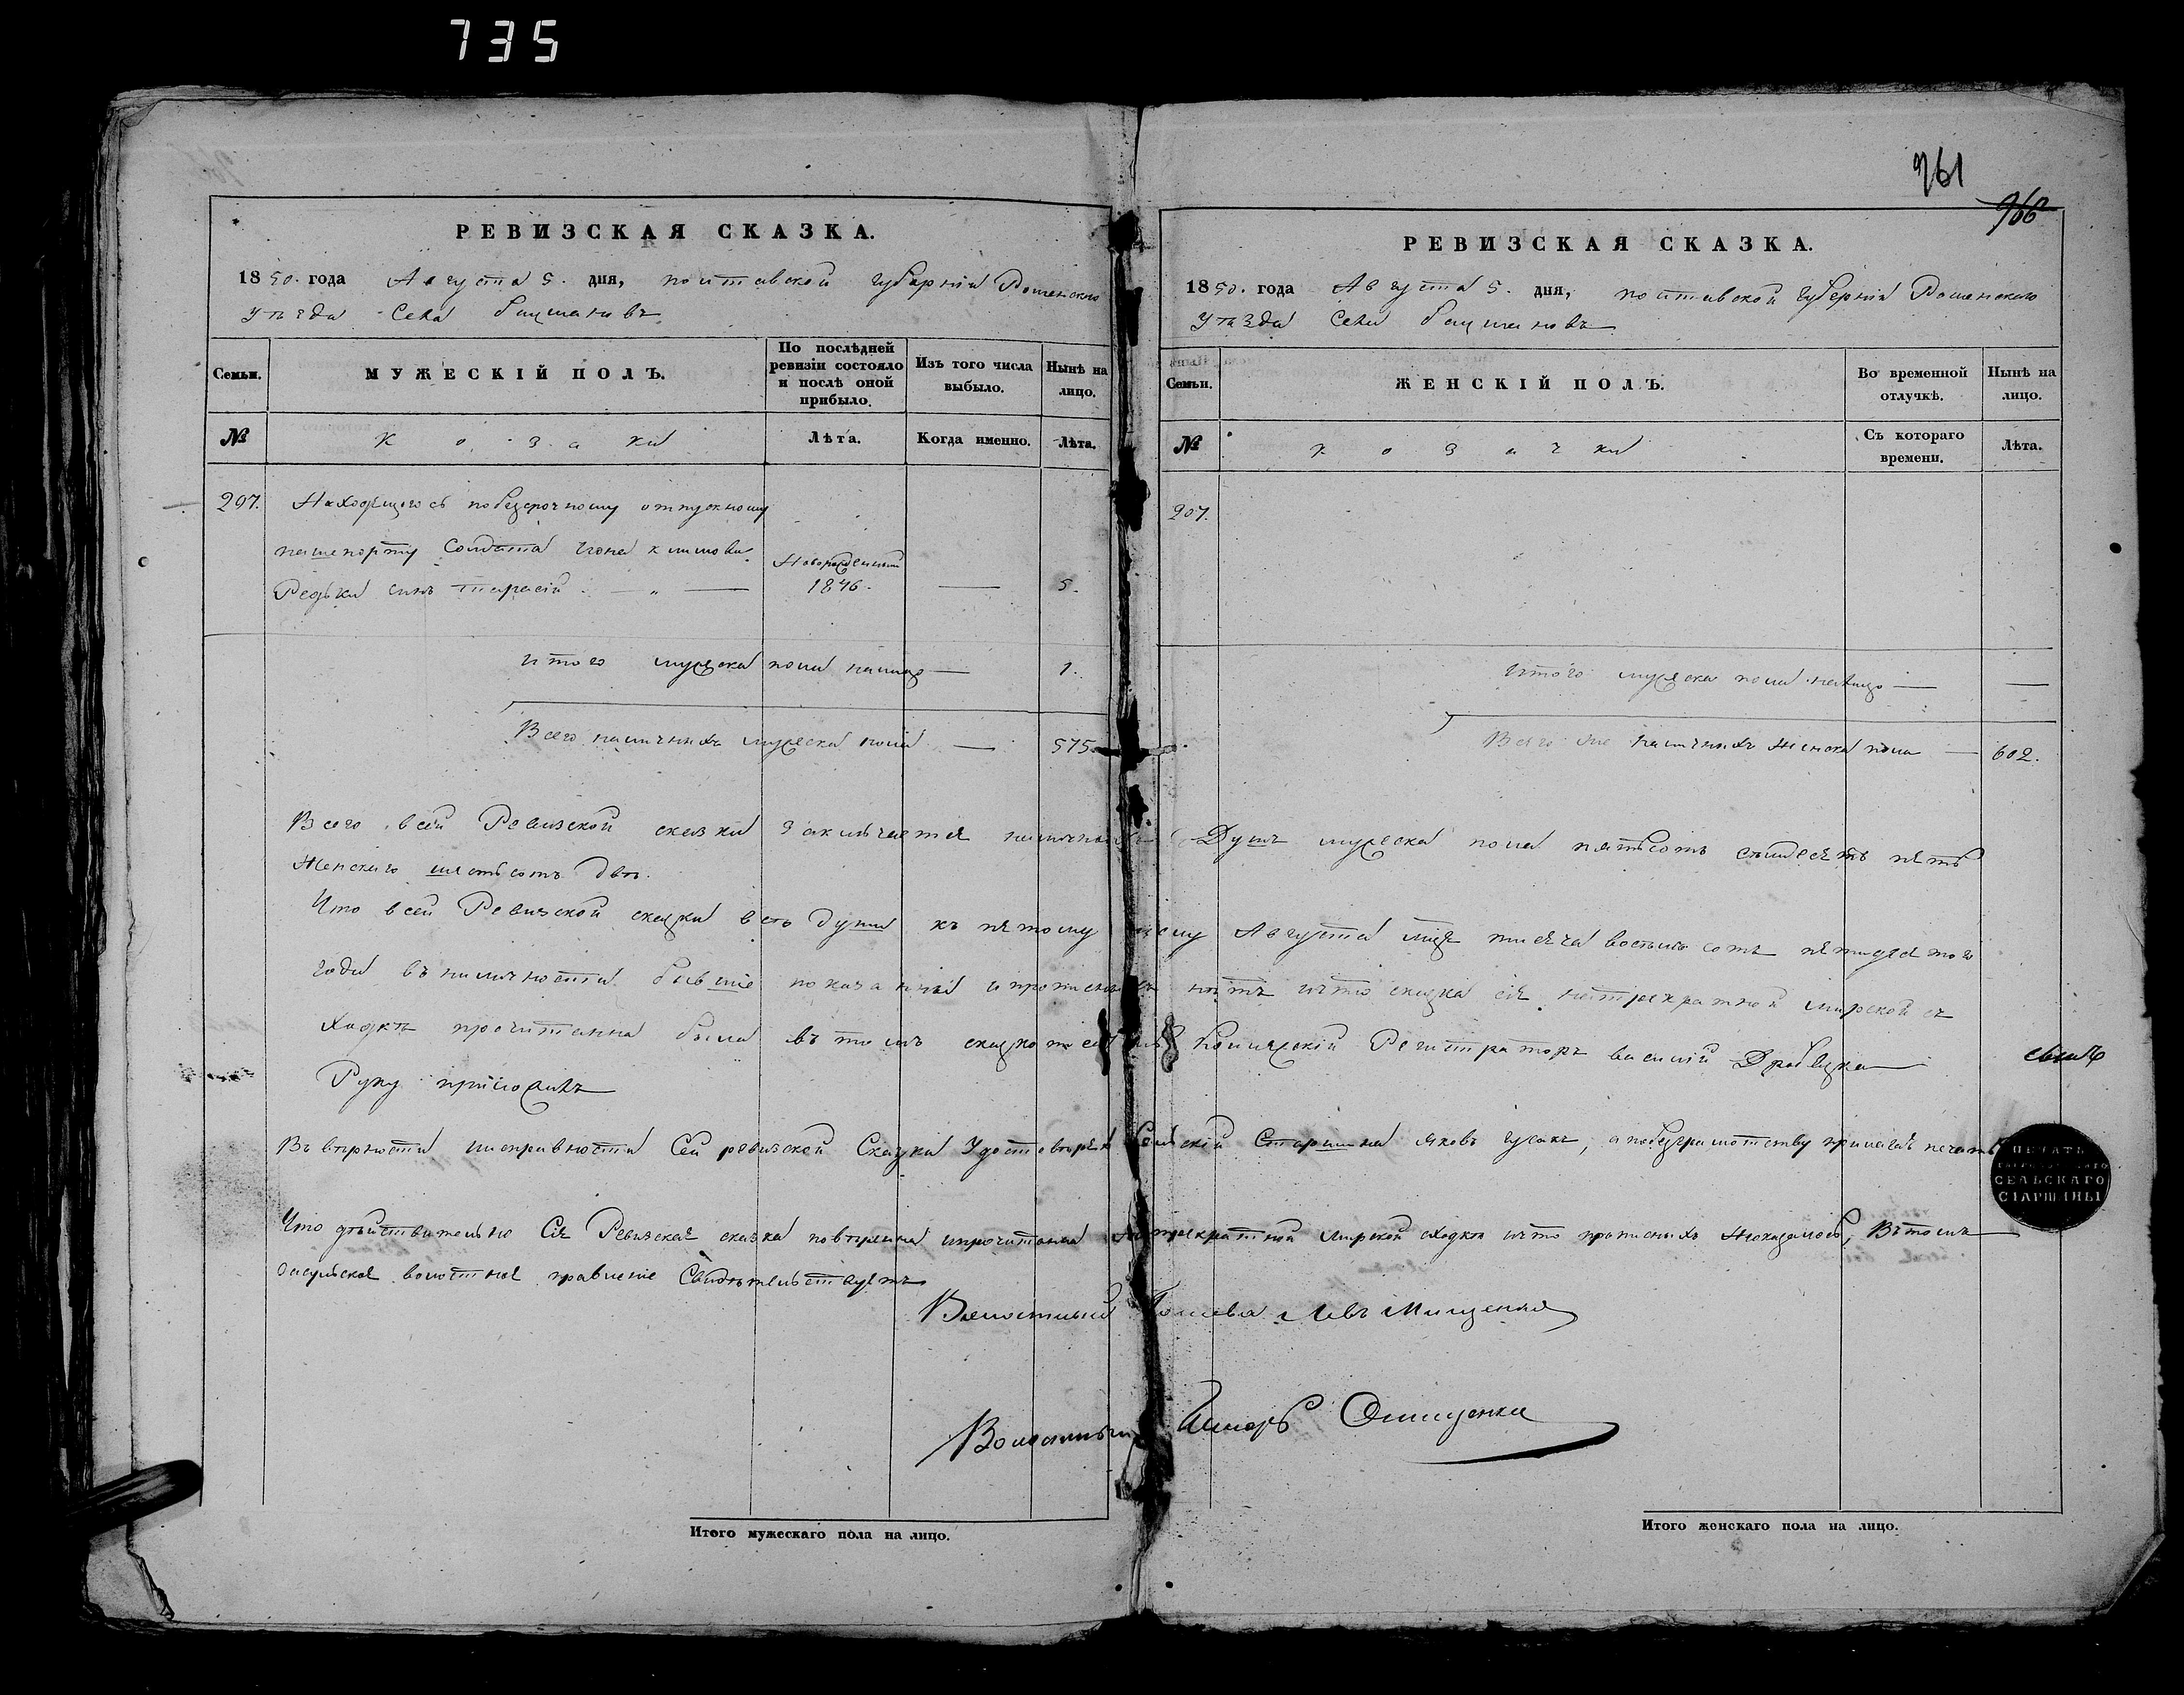 735
961
966
РЕВИЗСКАЯ СКАЗКА.
1850. года Августа 5. дня, полтавской губернии Роменского
уѣзда Села бацмановъ
Семьи.
МУЖЕСКІЙ ПОЛЪ.
По послѣдней ревизіи состояло и послѣ оной прибыло.
Изъ того числа выбыло.
Нынѣ на лицо.
№
козаки
Лѣта.
Когда именно.
Лѣта.
297. Находящегося побезсрочному отпускному
пашепорту Солдата климова
Редьки сынъ тарасій — „ — Новорожденный 1846. — 5.
итого мужеска пола налицо — 1.
Всего наличныхъ мужеска пола — 575.
РЕВИЗСКАЯ СКАЗКА.
1850. года Августа 5. дня, полтавской губерніи Роменского
уѣзда Села бацмановъ
Семьи.
ЖЕНСКІЙ ПОЛЪ.
Во временной отлучкѣ.
Нынѣ на лицо.
№
козачки
Съ котораго времени.
Лѣта.
297.
Итого мужеска пола налицо — —
Всего же наличныхъ женска пола — 602.
Всего всей Ревизской сказки заключается наличныхъ Душъ мужеска пола пятьсотъ семдесятъ пять
Женскаго шестьсотъ двѣ.
Что всей Ревизской сказки всѣ души къ пятому числу Августа мца тисяча восемь сотъ пятидесятого
года въ наличности бывшіе показанны нѣтъ ичто сказка сія натрехкратной мирской с
ходкѣ прочитанна была въ томъ Колежскій Регистраторъ василій
Руку приложилъ
Въ вѣрности исправности Сей ревизской Сказки Удостовѣряя Сельскій Старшина яковъ гусакъ, а побезграмотству прилагая печать
ПЕЧАТЬ
СЕЛЬСКАГО
СТАРШИНЫ
Что дѣйствительно Сія Ревизская сказка повѣренна ипрочитанна натрехкратной мирской сходкѣ ичто прописныхъ неоказалось, Въ томъ
волостное правленіе Свидѣтельствуетъ
Волостный Голова Левъ Мищенко
Волостный Писарь Онищенко
Итого мужескаго пола на лицо.
Итого женскаго пола на лицо.